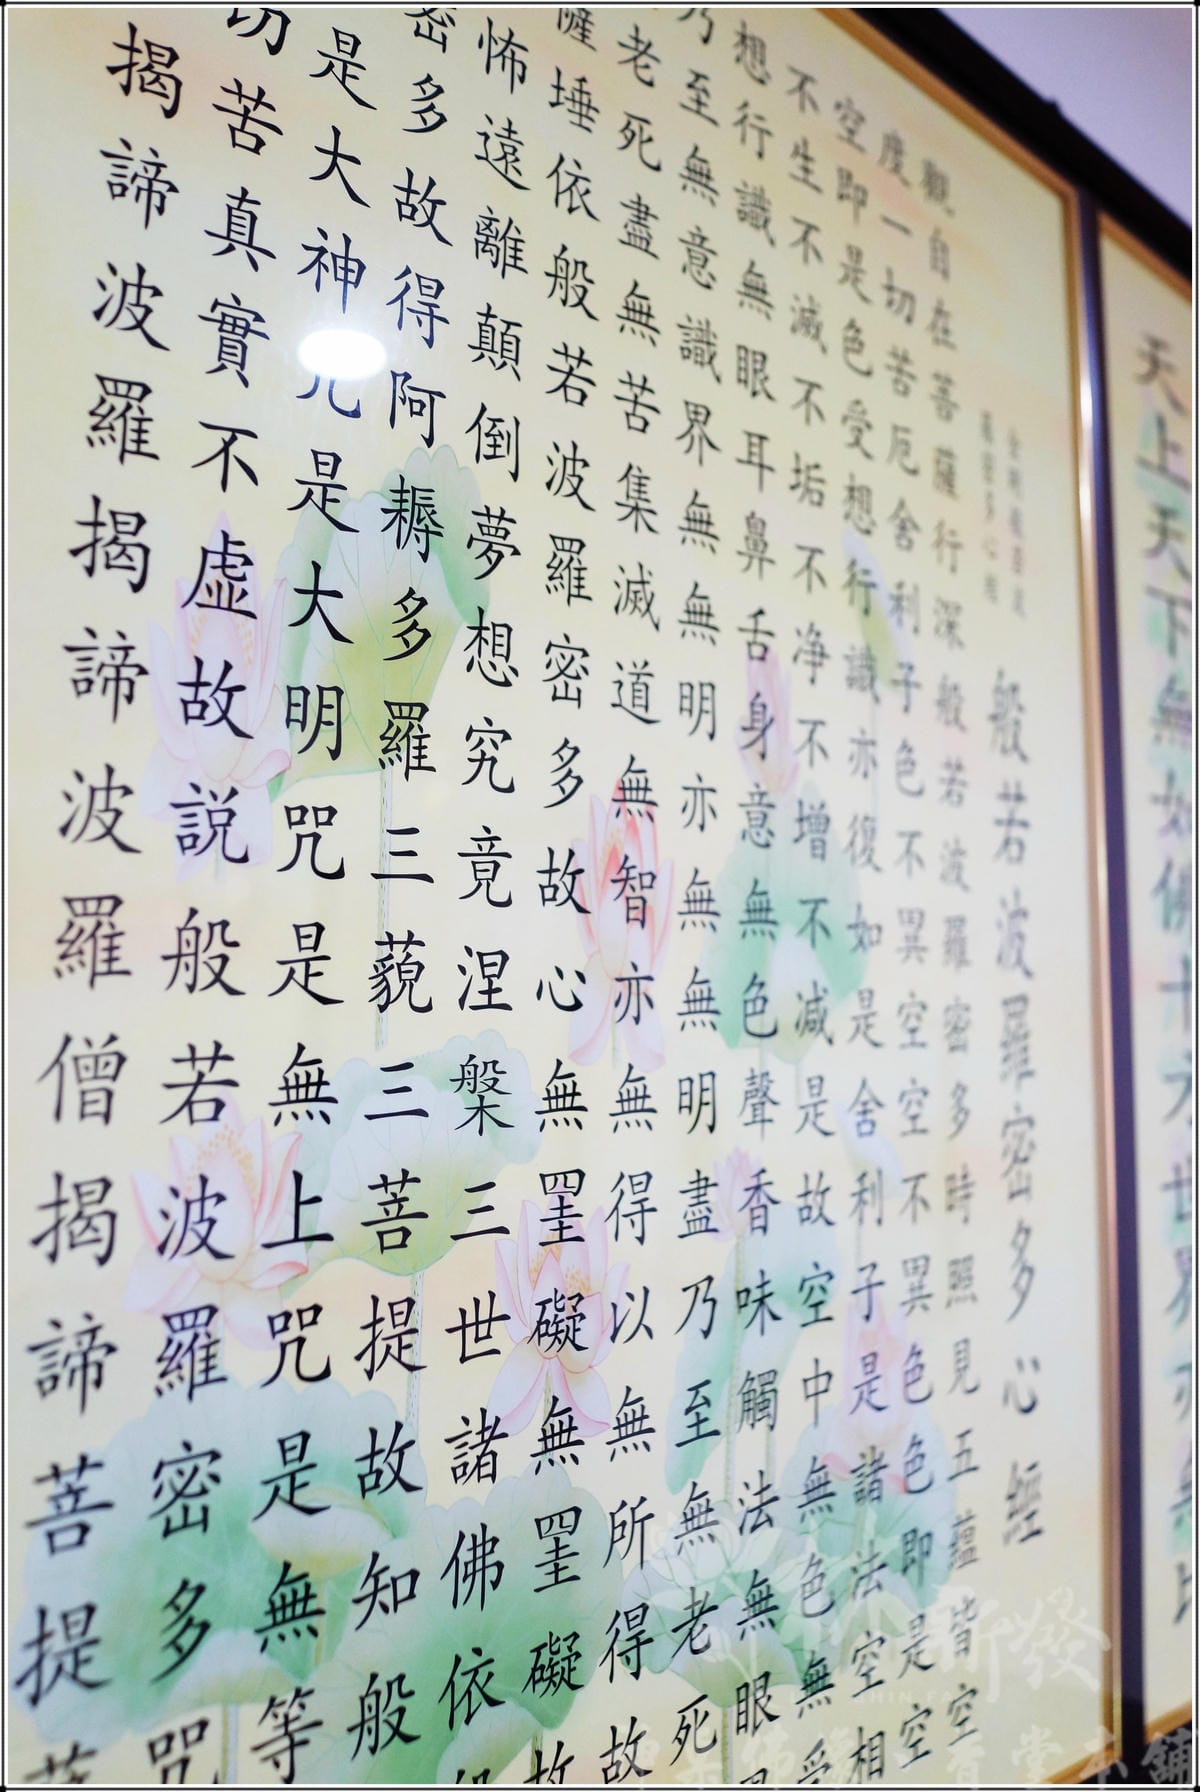 天上天下無如佛十方世界亦無比
般若波羅密多心經
觀自在菩薩行深般若波羅密多時照見五蘊皆空
度一切苦厄舍利子色不異空空不異色色即是空
空即是色受想行識亦復如是舍利子是諸法空相
不生不滅不垢不净不增不减是故空中無色無受
想行識無眼耳鼻舌身意無色聲香味觸法無眼
乃至無意識界無無明亦無無明盡乃至無老死
老死盡無苦集滅道無智亦無得以無所得故
薩埵依般若波羅密多故心無罣礙無罣礙故
怖遠離顛倒夢想究竟涅槃三世諸佛依
密多故得阿耨多羅三藐三菩提故知般
是大神咒是大明咒是無上咒是無等
切苦真實不虛故説般若波羅密多咒
揭諦波羅揭諦波羅僧揭諦菩提